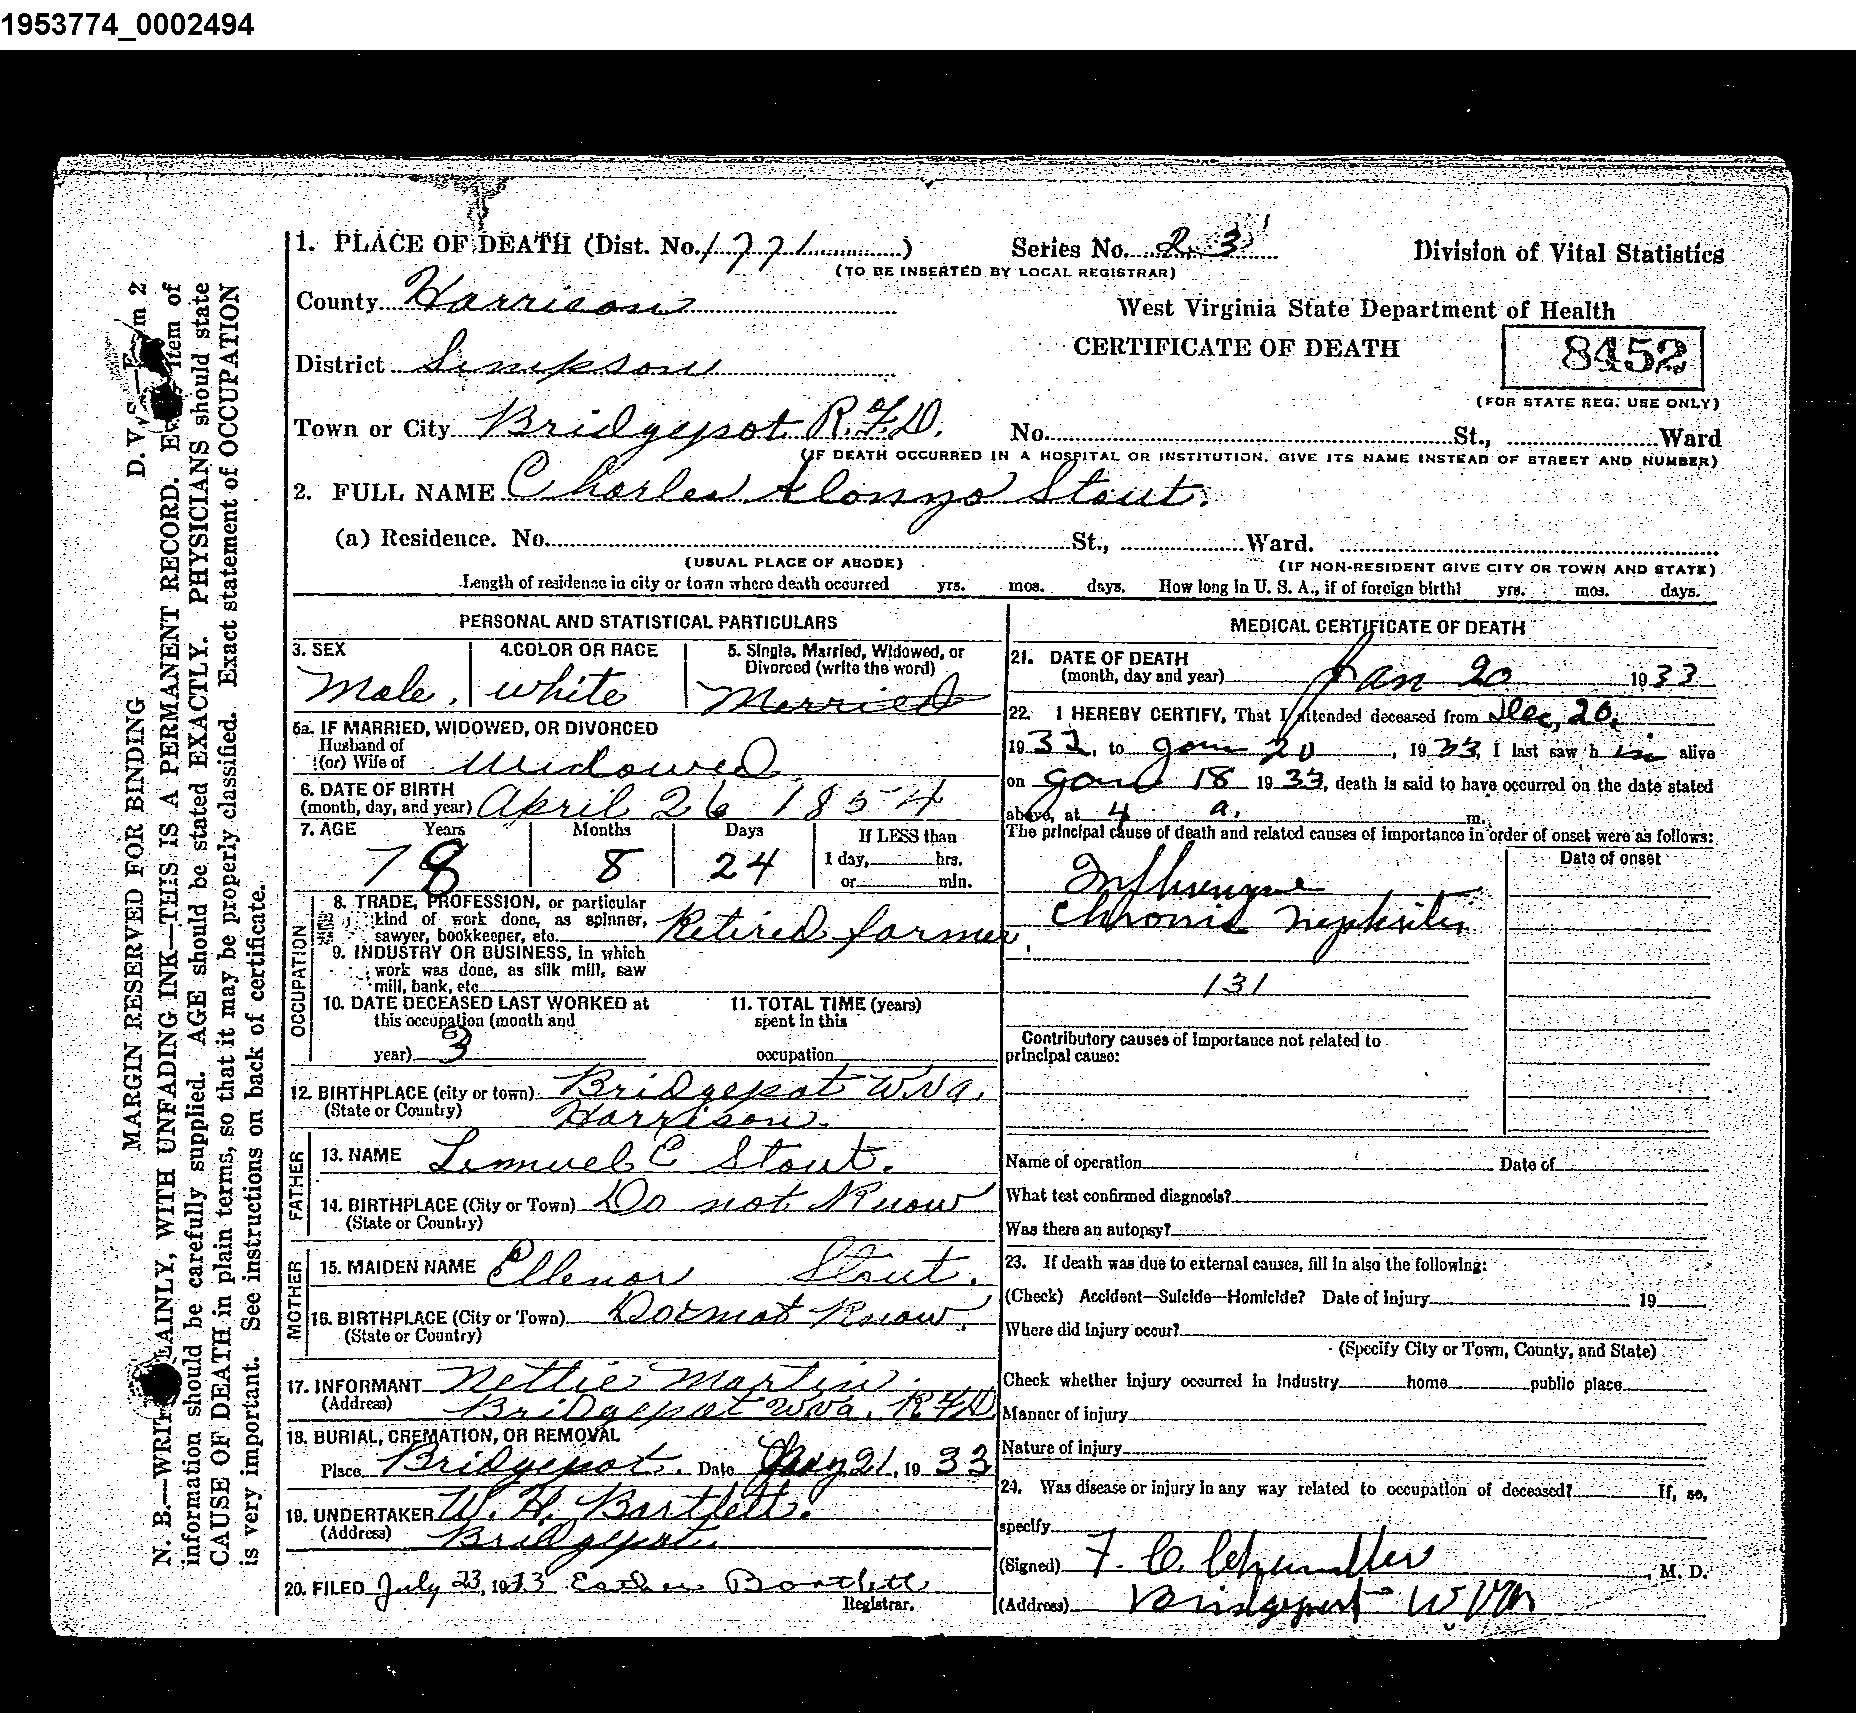 1953774_0002494
1. PLACE OF DEATH (Dist. No. 1771) Series No. 23 Division of Vital Statistics
(TO BE INSERTED BY LOCAL REGISTRAR)
County Harrison West Virginia State Department of Health
CERTIFICATE OF DEATH 8452
District Simpson
(FOR STATE REG. USE ONLY)
Town or City Bridgepot R.F.D. No. St., Ward
(IF DEATH OCCURRED IN A HOSPITAL OR INSTITUTION, GIVE ITS NAME INSTEAD OF STREET AND NUMBER)
2. FULL NAME Charles Alonzo Stout.
(a) Residence. No. St., Ward.
(USUAL PLACE OF ABODE) (IF NON-RESIDENT GIVE CITY OR TOWN AND STATE)
Length of residence in city or town where death occurred yrs. mos. days. How long in U. S. A., if of foreign birth? yrs. mos. days.
PERSONAL AND STATISTICAL PARTICULARS
3. SEX 4. COLOR OR RACE 5. Single, Married, Widowed, or
Divorced (write the word)
Male. white Married
5a. IF MARRIED, WIDOWED, OR DIVORCED
Husband of
(or) Wife of Widowed.
6. DATE OF BIRTH
(month, day, and year) April 26 1854
7. AGE Years Months Days If LESS than
78 8 24 1 day, hrs.
or min.
OCCUPATION
8. TRADE, PROFESSION, or particular
kind of work done, as spinner,
sawyer, bookkeeper, etc. Retired farmer.
9. INDUSTRY OR BUSINESS, in which
work was done, as silk mill, saw
mill, bank, etc
10. DATE DECEASED LAST WORKED at 11. TOTAL TIME (years)
this occupation (month and spent in this
year) 3 occupation
12. BIRTHPLACE (city or town) Bridgepot W.Va.
(State or Country) Harrison.
FATHER
13. NAME Lemuel C Stout.
14. BIRTHPLACE (City or Town) Do not Know
(State or Country)
MOTHER
15. MAIDEN NAME Ellenor Stout.
16. BIRTHPLACE (City or Town) Do not Know.
(State or Country)
17. INFORMANT Nettie Martin.
(Address) Bridgepot W.Va. RFD
18. BURIAL, CREMATION, OR REMOVAL
Place Bridgepot. Date 21, 1933
19. UNDERTAKER W. H. Bartlett.
(Address) Bridgepot.
20. FILED July 23, 1933 Bartlett
Registrar.
MEDICAL CERTIFICATE OF DEATH
21. DATE OF DEATH
(month, day and year) Jan 20 1933
22. I HEREBY CERTIFY, That I attended deceased from Dec, 20,
1932, to Jan 20, 1933, I last saw h im alive
on Jan 18 1933, death is said to have occurred on the date stated
above, at 4 a. m.
The principal cause of death and related causes of importance in order of onset were as follows:
Date of onset
Influenza
Chronic nephritis
131
Contributory causes of importance not related to
principal cause:
Name of operation Date of
What test confirmed diagnosis?
Was there an autopsy?
23. If death was due to external causes, fill in also the following:
(Check) Accident—Suicide—Homicide? Date of injury 19
Where did injury occur?
(Specify City or Town, County, and State)
Check whether injury occurred in industry home public place
Manner of injury
Nature of injury
24. Was disease or injury in any way related to occupation of deceased? If, so,
specify
(Signed) F. C. Chandler, M. D.
(Address) Bridgeport W Va
MARGIN RESERVED FOR BINDING D. V. S. Form 2
N. B.—WRITE PLAINLY, WITH UNFADING INK—THIS IS A PERMANENT RECORD. Every item of
information should be carefully supplied. AGE should be stated EXACTLY. PHYSICIANS should state
CAUSE OF DEATH in plain terms, so that it may be properly classified. Exact statement of OCCUPATION
is very important. See instructions on back of certificate.